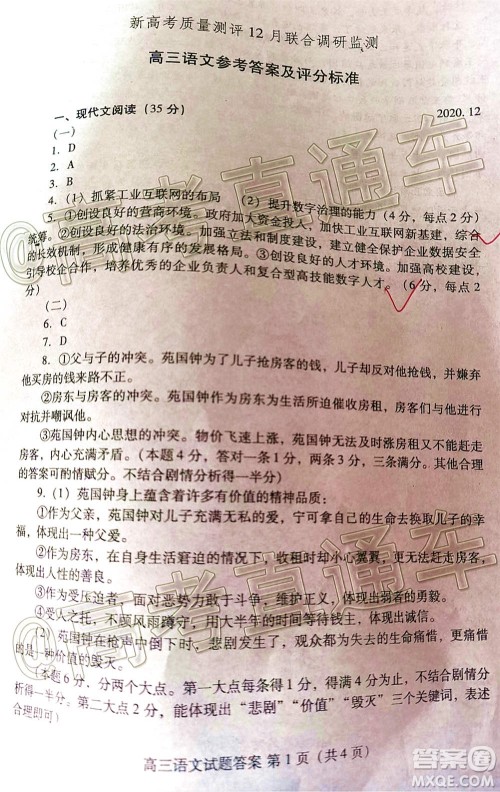 新高考质量测评12月联合调研监测
高三语文参考答案及评分标准
2020.12
一、现代文阅读(35分)
(一)
1. D
2. A
3. B
4. (1)抓紧工业互联网的布局 (2)提升数字治理的能力(4分，每点2分)
5. ①创设良好的营商环境。政府加大资金投入，加快工业互联网新基建，综合
统筹。②创设良好的法治环境。加强立法和制度建设，建立健全保护企业数据安全
的长效机制，形成健康有序的发展格局。③创设良好的人才环境。加强高校建设，
引导校企合作，培养优秀的企业负责人和复合型高技能数字人才。(6分，每点2
分)
(二)
6. C
7. D
8. ①父与子的冲突。苑国钟为了儿子抢房客的钱，儿子却反对他抢钱，并嫌弃
他买房的钱来路不正。
②房东与房客的冲突。苑国钟作为房东为生活所迫催收房租，房客们对他进行
对抗并嘲讽他。
③苑国钟内心思想的冲突。物价飞速上涨，苑国钟无法生活却又不能赶走房
客，内心充满矛盾。(本题4分，答对一条1分，两条3分，三条满分。其他合理
的答案可酌情赋分。不结合剧情分析得一半分)
9. (1)苑国钟身上蕴含着许多有价值的精神品质：
①作为父亲，苑国钟对儿子充满无私的爱，宁可拿自己的生命去换取儿子的幸
福，体现出一种父爱。
②作为房东，在自身生活窘迫的情况下，收租时却小心翼翼，更不赶走房客，
体现出人性的善良。
③作为受压迫者，面对恶势力敢于斗争，维护正义，体现出弱者的勇毅。
④受人之托，不顾风雨蹲守，用大半年的时间等待一个机会，体现出诚信。
(2)苑国钟在枪声中倒下时，悲剧发生了，观众都为失去的生命痛惜，更痛惜
的是一种价值的毁灭。
(本题6分，分两个大点。第一大点每条得1分，得满4分为止，不结合剧情分
析得一半分。第二大点2分，能体现出“悲剧”“价值”“毁灭”三个关键词，表述
合理即可)
高三语文试题答案 第1页(共4页)
@高考直通车
@高考直通车
答案圈
MXQE.COM